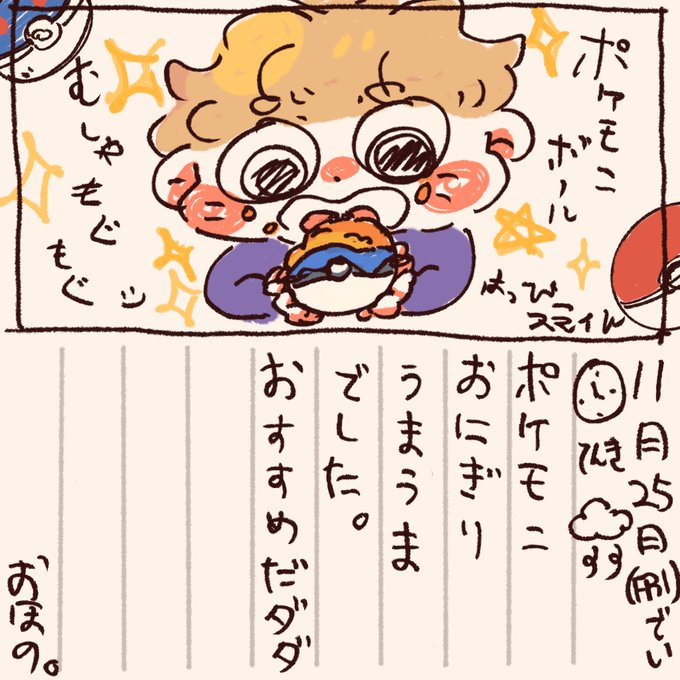 ポケモニ
ボール
はっぴー
スマイル
むしゃ
もぐ
もぐ
11月25日(月)でい
てんき
すす
ポケモニ
おにぎり
うまうま
でした。
おすすめだダダ
おほの。